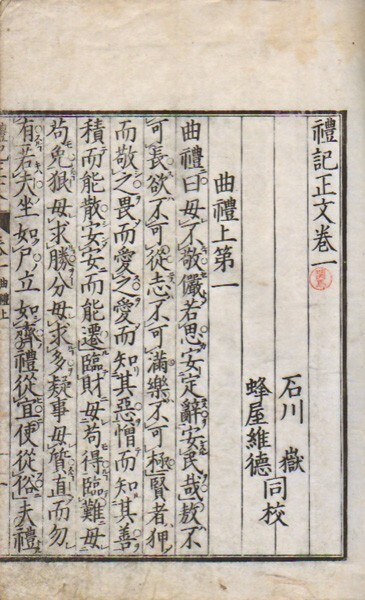 禮記正文卷一
石川 嶽
蜂屋維德同校
曲禮上第一
曲禮曰毋不敬儼若思安定辭安民哉敖不
可長欲不可從志不可滿樂不可極賢者狎
而敬之畏而愛之愛而知其惡憎而知其善
積而能散安安而能遷臨財毋苟得臨難毋
苟免狠毋求勝分毋求多疑事毋質直而勿
有若夫坐如尸立如齊禮從宜使從俗夫禮
曲禮上